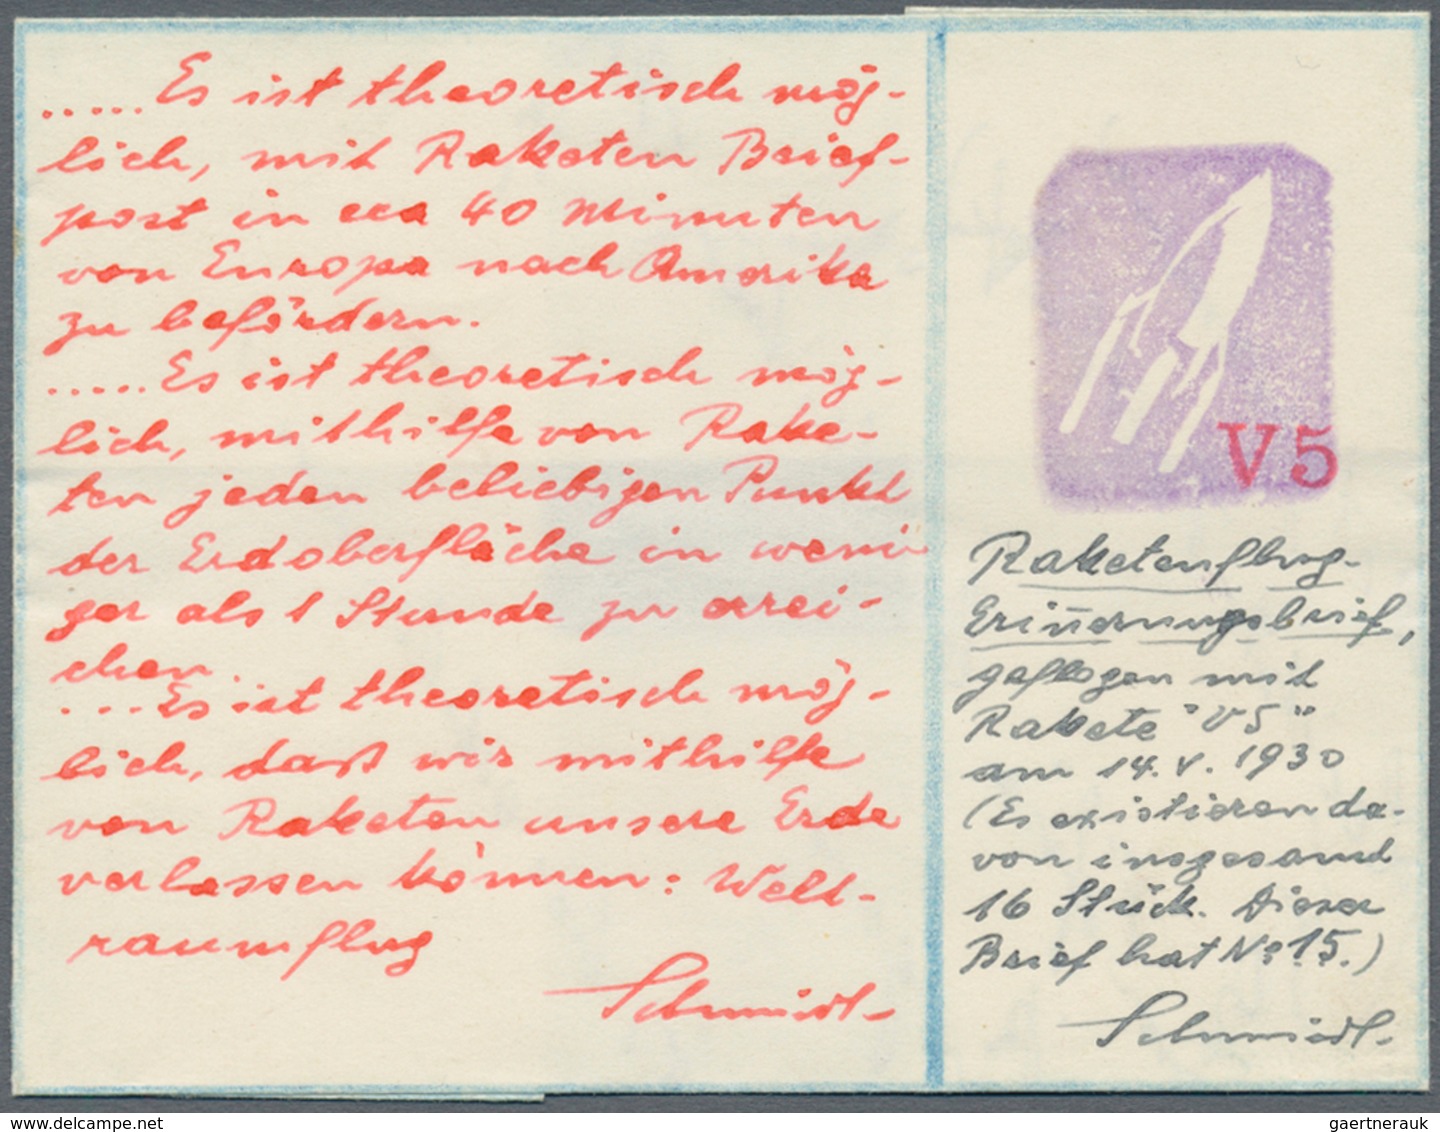 .....Es ist theoretisch mög-
lich, mit Raketen Brief-
post in cca 40 Minuten
von Europa nach Amerika
zu befördern.
.....Es ist theoretisch mög-
lich, mithilfe von Rake-
ten jeden beliebigen Punkt
der Erdoberfläche in weni
ger als 1 Stunde zu errei-
chen.
....Es ist theoretisch mög-
lich, daß wir mithilfe
von Raketen unsere Erde
verlassen können: Welt-
raumflug
Schmiedl
V5
Raketenflug-
Erinnerungsbrief,
geflogen mit
Rakete "V5"
am 14.V.1930
(Es existieren da-
von insgesamt
16 Stück. Dieser
Brief hat No 15.)
Schmiedl
gaertnerauk
delcampe.net